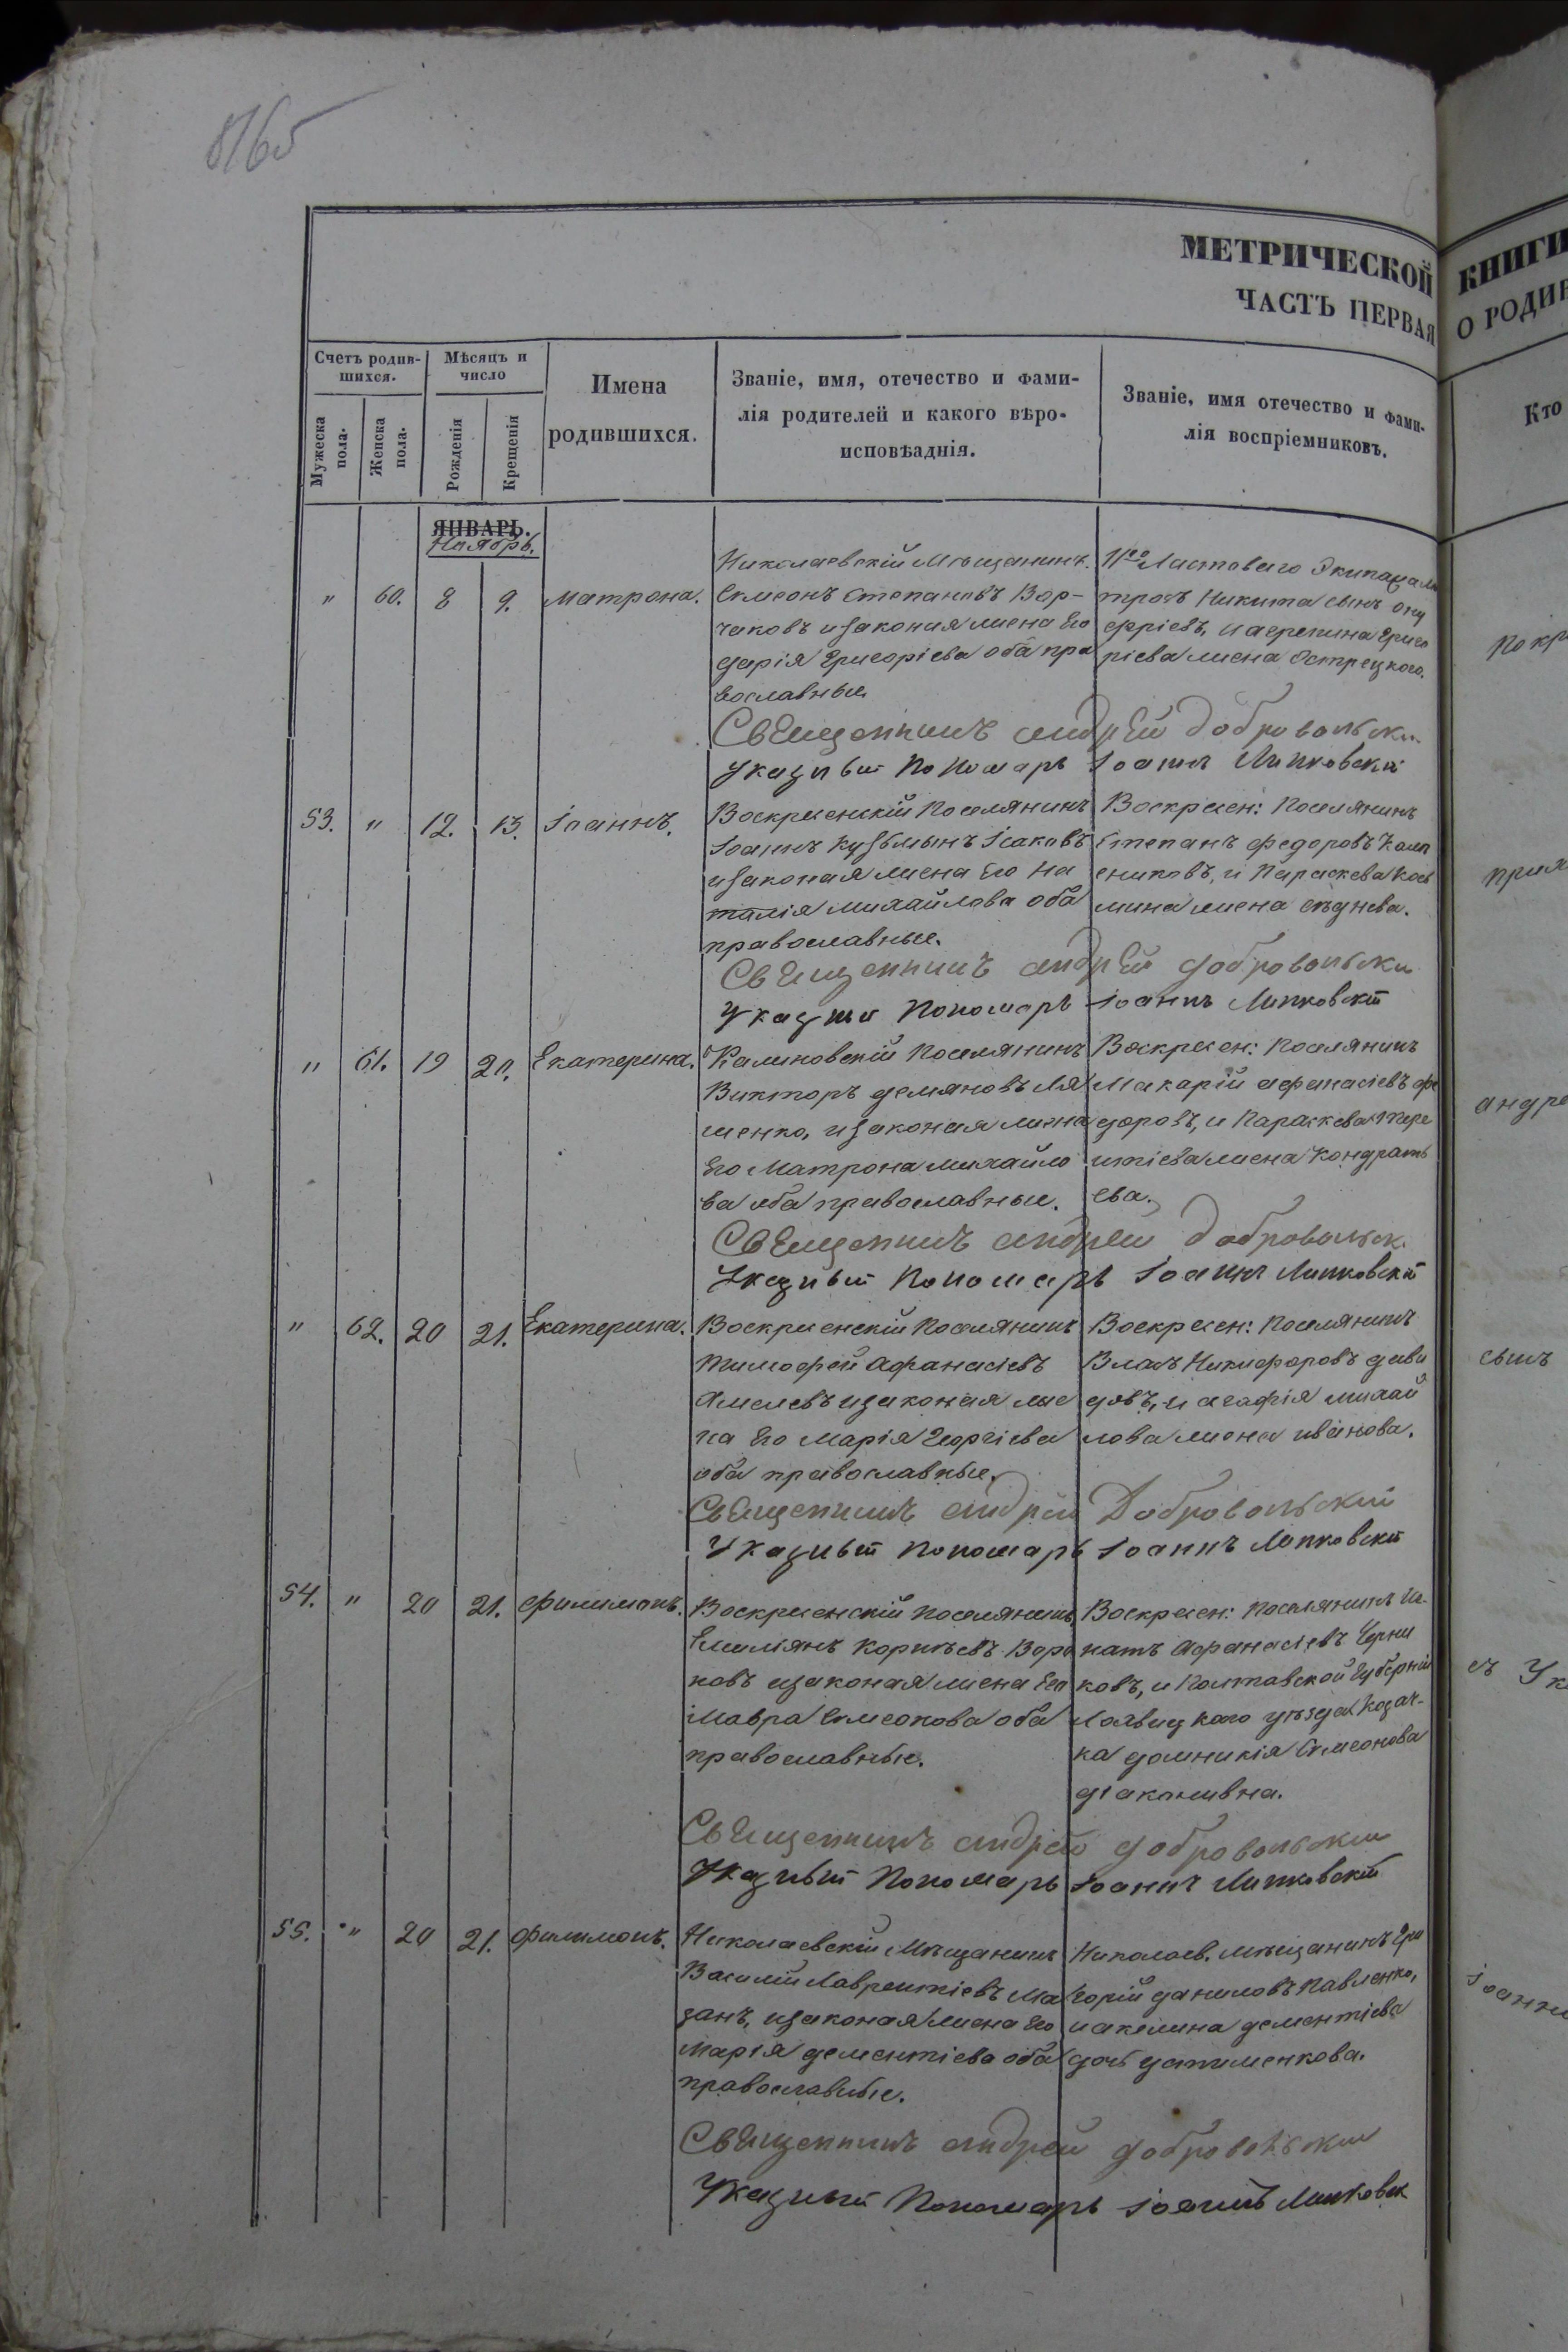 816б
МЕТРИЧЕСКОЙ КНИГИ
ЧАСТЬ ПЕРВАЯ О РОДИВ
Счетъ родив-
шихся.
Мѣсяцъ и
число
Мужеска
пола.
Женска
пола.
Рожденія
Крещенія
Имена
родившихся.
Званіе, имя, отечество и фами-
лія родителей и какого вѣро-
исповѣаднія.
Званіе, имя отечество и фами-
лія воспріемниковъ.
Кто
ЯНВАРЬ.
Ноябрь.
" 60. 8 9. Матрона.
Николаевскій Мѣщанинъ
Симеонъ Степановъ Вор-
чаковъ изакония жена Его
дарія Григоріева оба пра
вославные
Ластоваго Экипажа ма
тросъ Никита сынъ ону
фріевъ, Григо
ріева жена Острецкого.
Священникъ андрей добровольски
Указный Пономарь Іоаннъ Липковскій
53. " 12. 13. Іоаннъ.
Воскресенскій Поселянинъ
Іоаннъ Кузьминъ Исаковъ
изаконая жена Его На
талія Михайлова оба
православные.
Воскресен: Поселянинъ
Степанъ Федоровъ Колп
ениковъ, и Параскева Кось
мина жена
Священникъ андрей добровольски
Указный Пономарь Іоаннъ Липковскій
" 61. 19 20. Екатерина.
Калиновскій Поселянинъ
Викторъ демяновъ Ля
шенко, изаконая жена
Его Матрона Михайло
ва оба православные.
Воскресен: Поселянинъ
Макарій афанасіевъ фе
доровъ, и Параскева Тере
нтіева жена Кондрать
ева.
Священникъ андрей добровольск
Указный Пономарь Іоаннъ Липковскій
" 62. 20 21. Екатерина.
Воскресенскій Поселянинъ
Тимофей Афанасіевъ
изаконая же
на Его Марія Георгіева
оба православные.
Воскресен: Поселянинъ
Власъ Никифоровъ дави
довъ, и агафія михай
лова жена иванова.
Священникъ андрей Добровольский
Указный Пономарь Іоаннъ Липковскій
54. " 20 21. Филимонъ.
Воскресенскій Поселянинъ
Емиліянъ Корнѣевъ Воро
новъ изаконая жена Его
Мавра Симеонова оба
православные.
Воскресен: Поселянинъ Иг-
натъ Афанасіевъ Черни
ковъ, и Полтавской Губерніи
уѣзда Козач-
ка домникія Симеонова
діаконивна.
Священникъ андрей добровольски
Указный Пономарь Іоаннъ Липковскій
55. " 20 21. Филимонъ.
Николаевскій Мѣщанинъ
Василій Лаврентіевъ Ма
занъ, изаконая жена Его
Марія дементіева оба
православные.
Николаев. мѣщанинъ Гри
горій даниловъ Павленко,
иакелина дементіева
дочь устименкова.
Священникъ андрей добровольски
Указный Пономарь Іоаннъ Липковск
покр
прих
андре
сынъ
съ Ук
іоанн